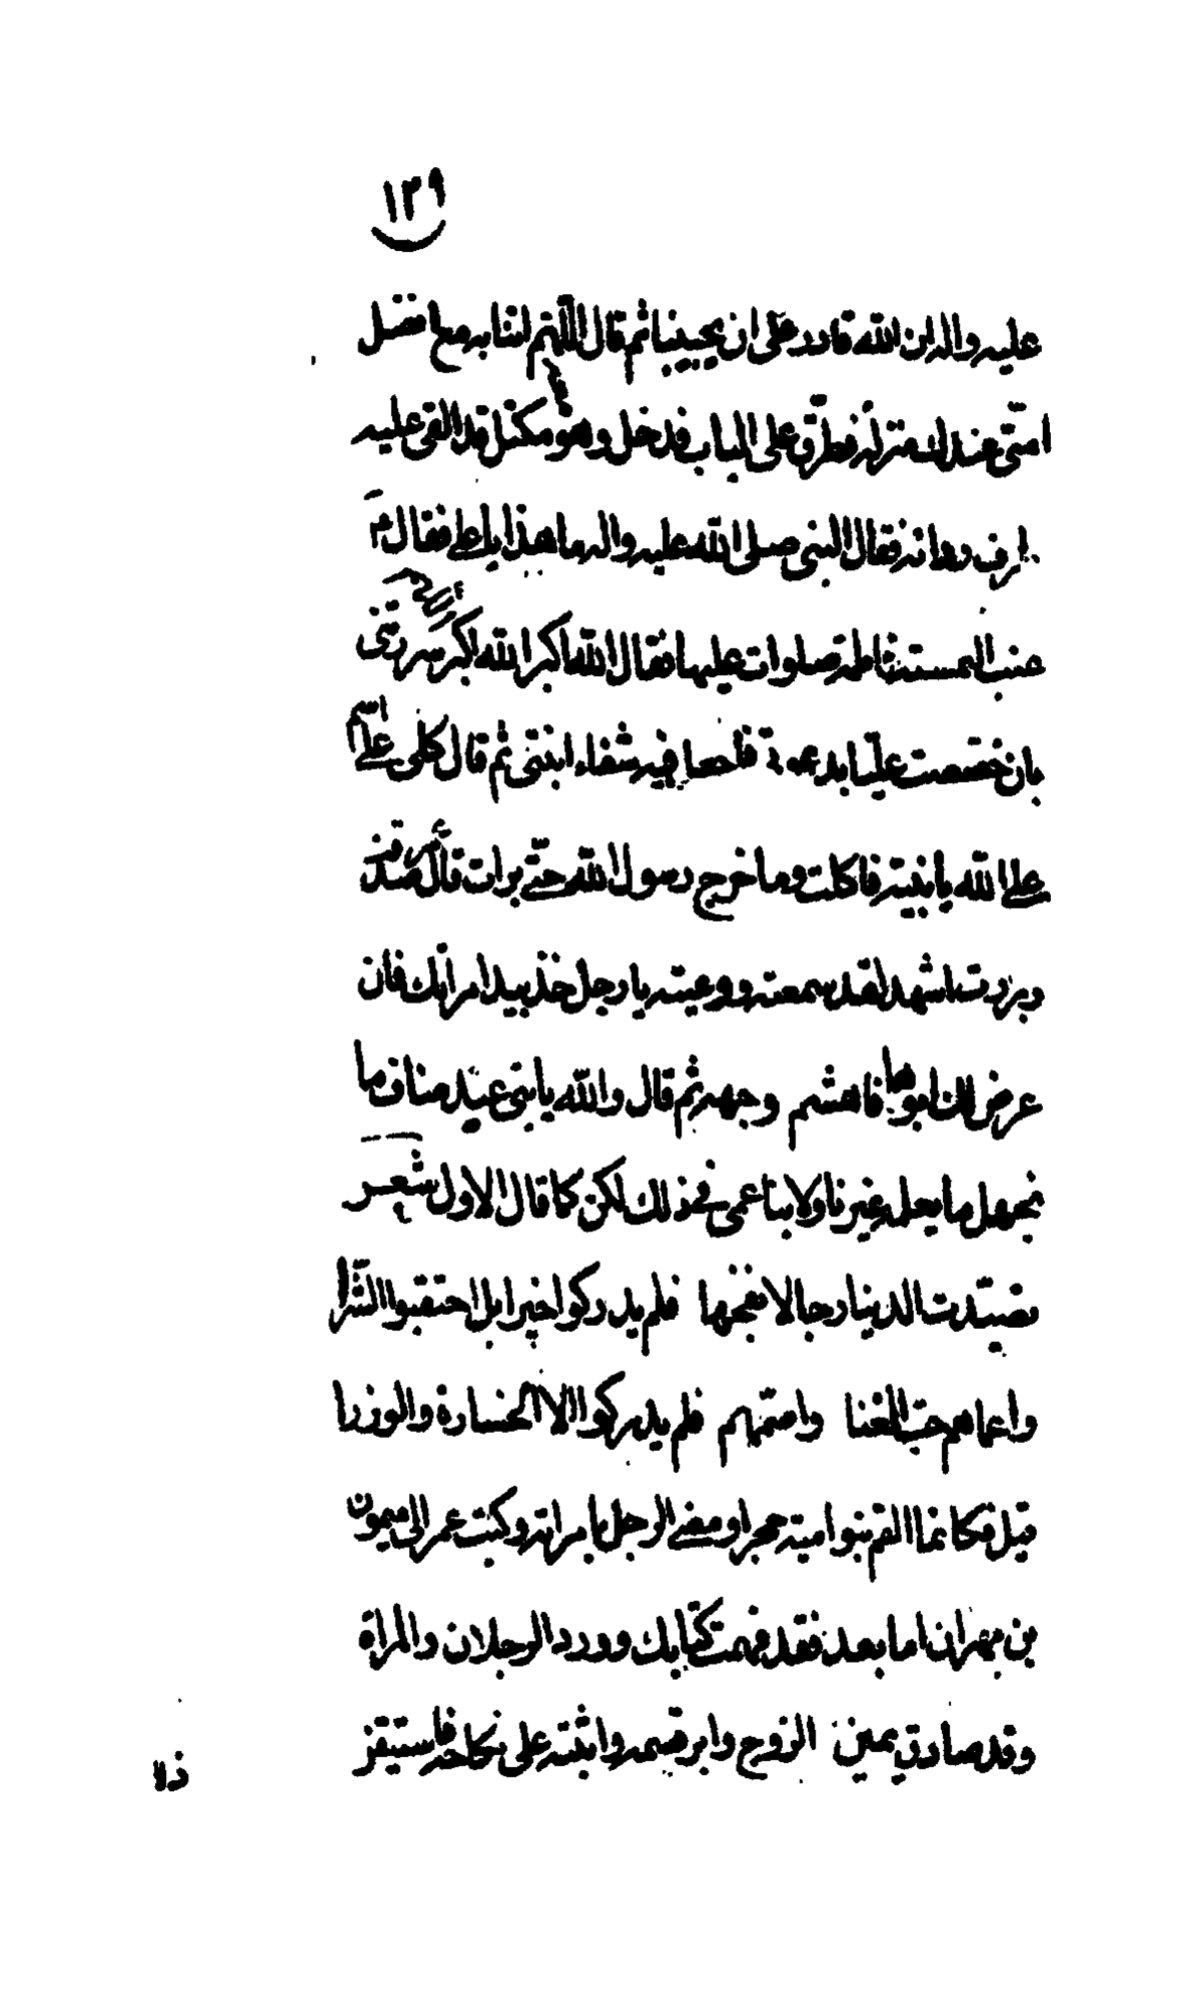 ١٣٩
عليه واله ان الله قادر على ان يجيبنا ثم قال اللهم ائتنا به مع افضل
امتى عندك منزلة فطرق على الباب فدخل وهو مكتل قد القى عليه
فقال النبى صلى الله عليه واله ما هذا يا على فقال
عنب التمسته لفاطمة صلوات عليها فقال الله اكبر الله اكبر كما سررتنى
بان خصصت عليا بدعوة فاجعل فيه شفاء ابنتى ثم قال كلى على اسم
الله يا بنية فاكلت وما خرج رسول الله حتى برات قال عمر صدقت
وبررت اشهد لقد سمعته ووعيته يا رجل خذ بيد امراتك فان
عرض لك ابوها فاهشم وجهه ثم قال والله يا بنى عبد مناف ما
نجهل ما يعلم غيرنا ولا بنا عمى فى ذلك لكن كما قال الاول شعر
تصيدت الدنيا رجالا بفخها فلم يدركوا خيرا بل احتقبوا الشرا
واعماهم حب الغنا واصمهم فلم يدركوا الا الخسارة والوزرا
قيل فكانما القم بنوا امية حجرا ومضى الرجل بامراته وكتب عمر الى ميمون
بن مهران اما بعد فقد فهمت كتابك وورد الرجلان والمراة
وقد صادق يمين الزوج وابر قسمه واثبته على نكاحه فاستيقن
ذلا